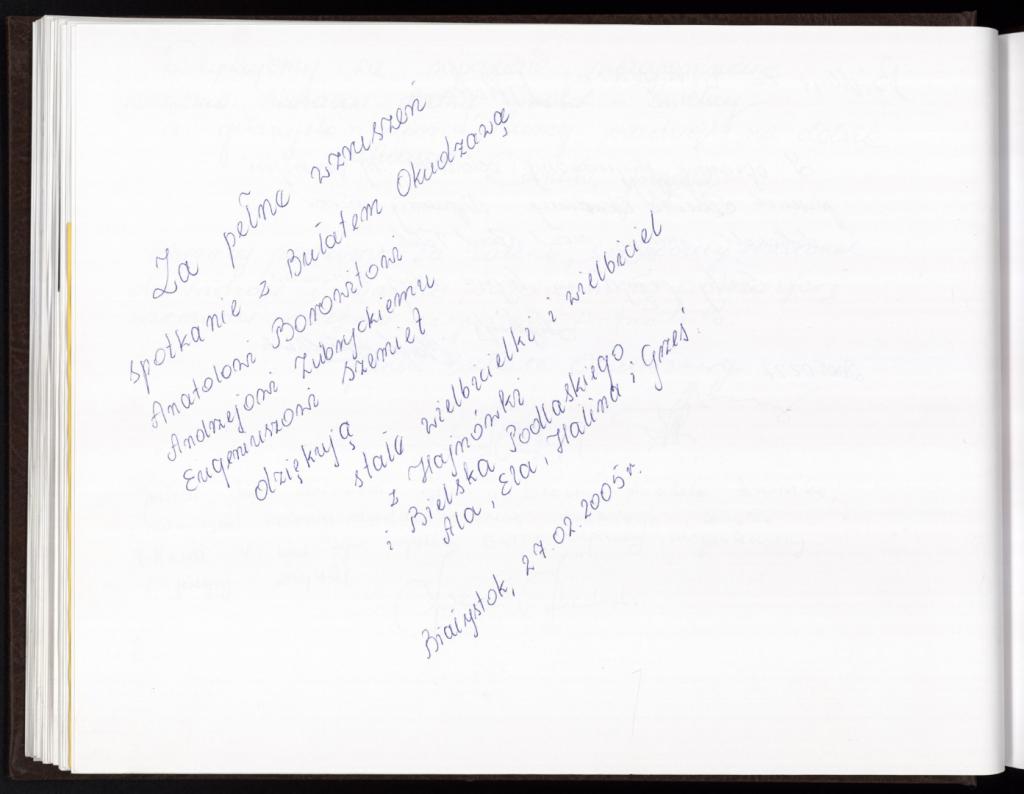 Za pełne wzruszeń
spotkanie z Bułatem Okudżawą
Anatolowi Borowitowi
Andrzejowi Zubryckiemu
Eugeniuszowi Szemiet
dziękują
stałe wielbicielki i wielbiciel
z Hajnówki
i Bielska Podlaskiego
Ala, Ela, Halina i Grześ.
Białystok, 27.02.2005 r.